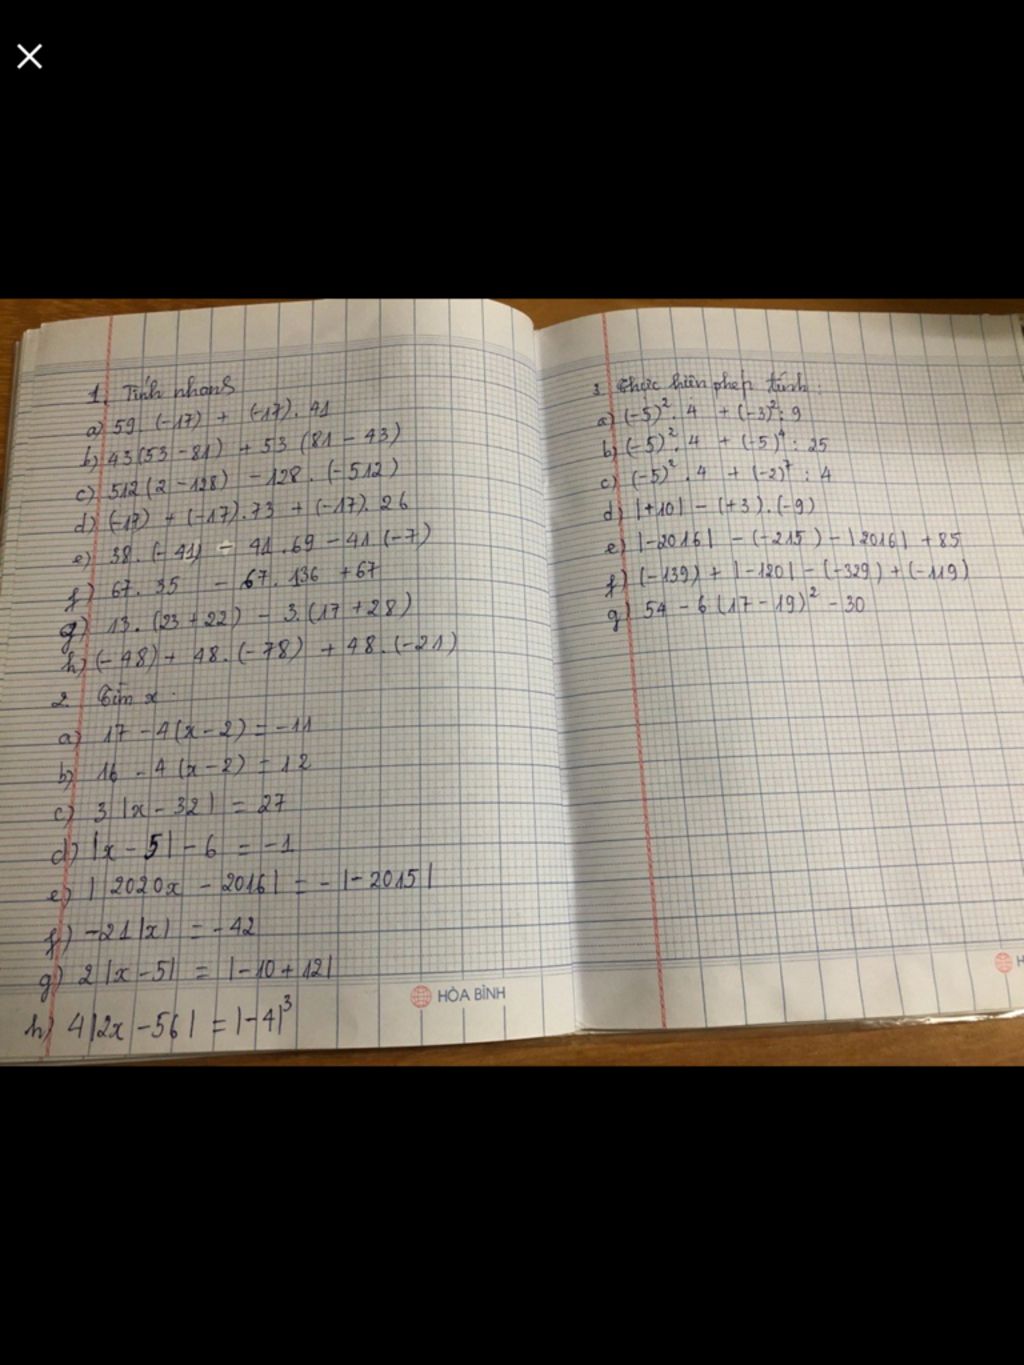 1. Tính nhanh
a) 59. (-17) + (-17). 41
b) 43(53 - 81) + 53 (81 - 43)
c) 512(2 - 128) - 128. (-512)
d) (-17) + (-17).73 + (-17). 26
e) 38. (-41) - 41.69 - 41 (-7)
f) 67. 35 - 67. 136 + 67
g) 13. (23 + 22) - 3. (17 + 28)
h) (-48) + 48. (-78) + 48. (-21)
2. Tìm x:
a) 17 - 4(x - 2) = -11
b) 16 - 4(x - 2) = 12
c) 3|x - 32| = 27
d) |x - 5| - 6 = -1
e) | 2020x - 2016| = -|-2015|
f) -21|x| = -42
g) 2|x - 5| = |-10 + 12|
h) 4|2x - 56| = |-4|³
HÒA BÌNH
3. Thực hiện phép tính:
a) (-5)². 4 + (-3)²: 9
b) (-5)². 4 + (-5)⁴: 25
c) (-5)². 4 + (-2)⁷: 4
d) |+10| - (+3). (-9)
e) |-2016| - (-215) - |2016| + 85
f) (-139) + |-120| - (-329) + (-119)
g) 54 - 6(17 - 19)² - 30
H